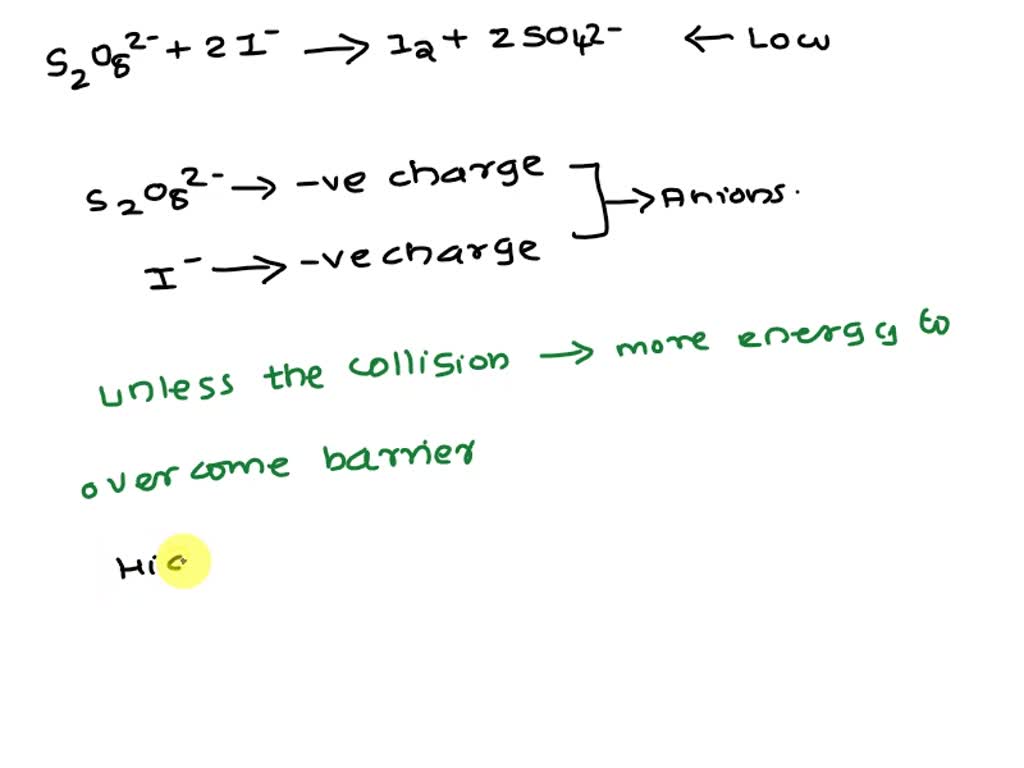 S₂O₈²⁻ + 2I⁻ → I₂ + 2SO₄²⁻ ← Low
S₂O₈²⁻ → -ve charge
→ Anions.
I⁻ → -ve charge
unless the collision → more energy to
overcome barrier
Hi